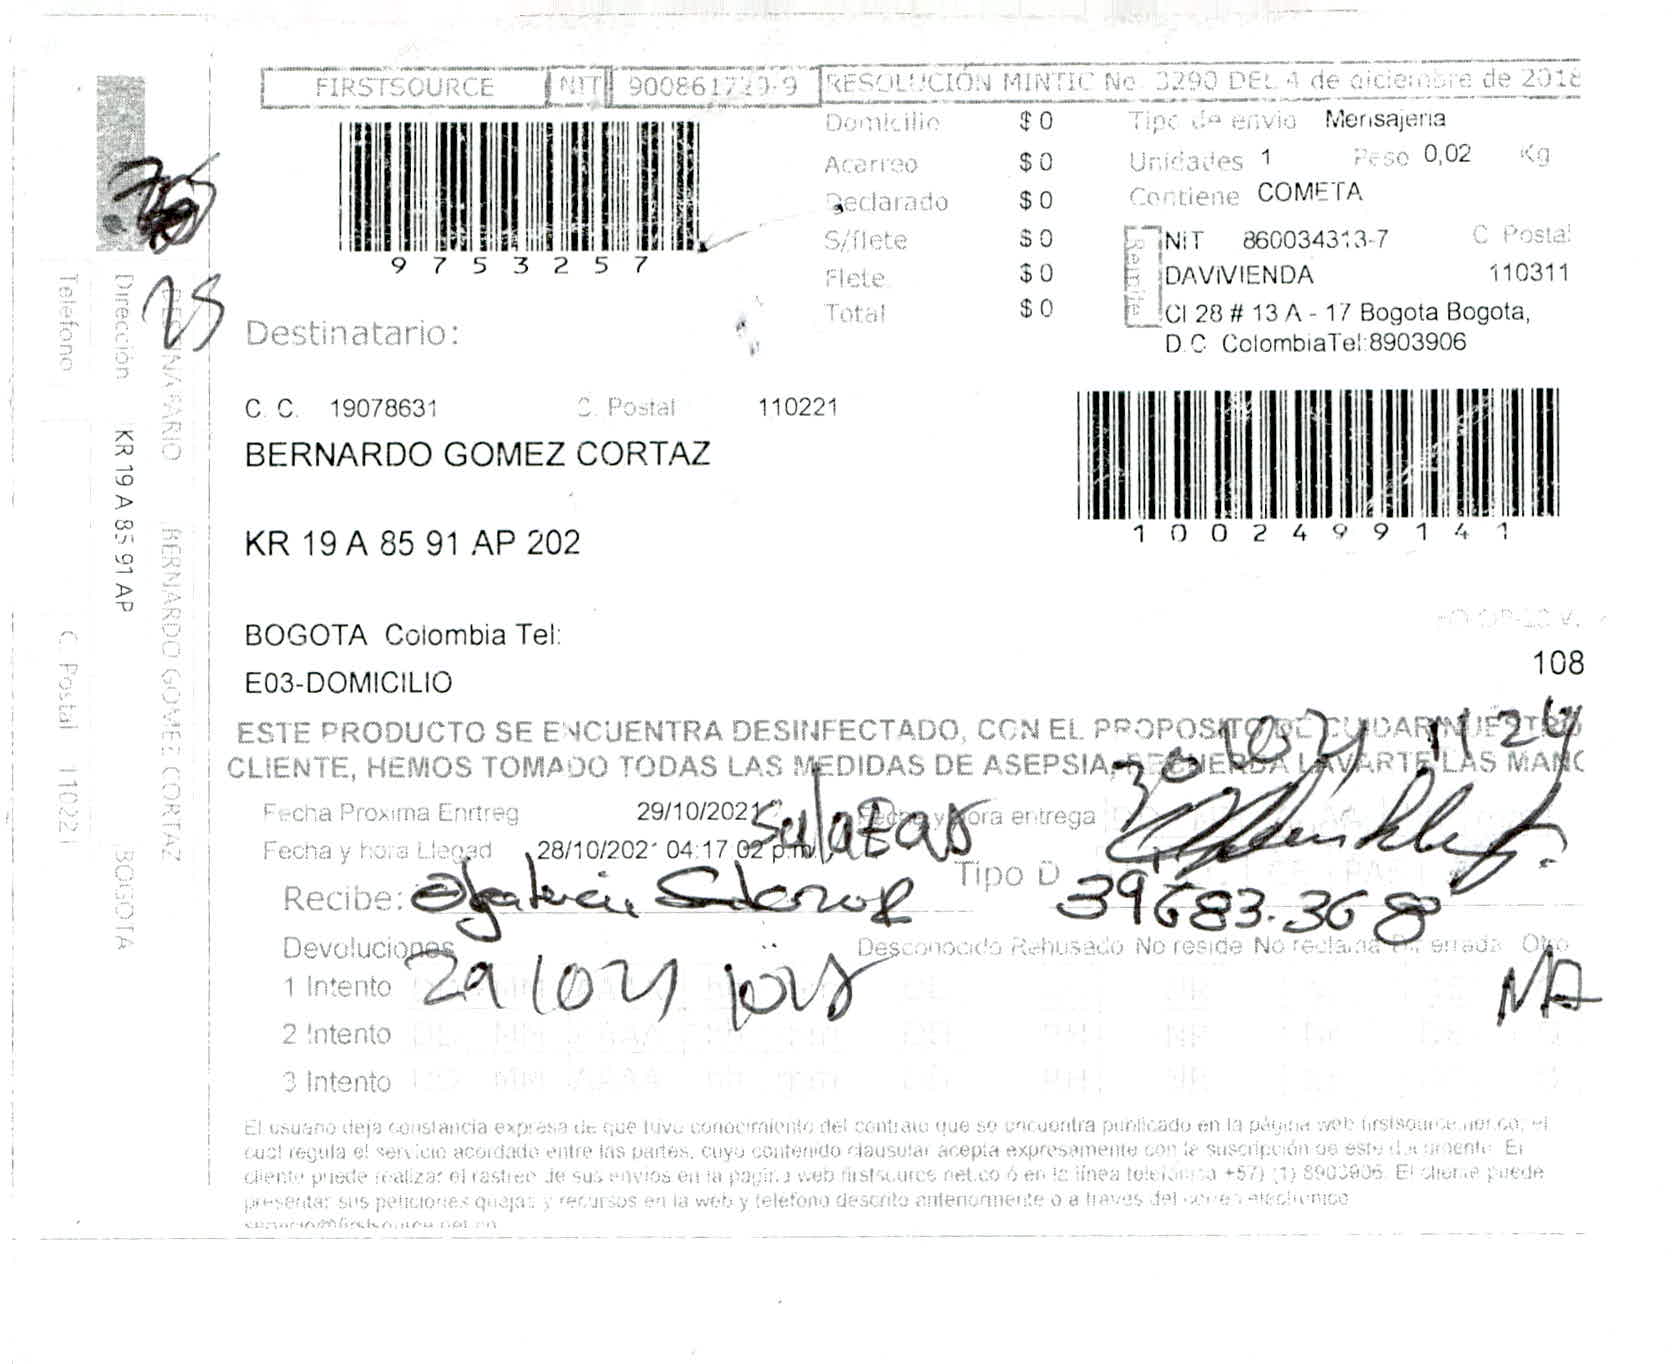 FIRSTSOURCE NIT 900861729-9 RESOLUCIÓN MINTIC No. 3290 DEL 4 de diciembre de 2018
9753257
Domicilio $ 0
Acarreo $ 0
Declarado $ 0
S/flete $ 0
Flete $ 0
Total $ 0
Tipo de envio Mensajeria
Unidades 1 Peso 0,02 Kg
Contiene COMETA
Remite
NIT 860034313-7 C Postal
DAVIVIENDA 110311
Cl 28 # 13 A - 17 Bogota Bogota,
D.C ColombiaTel:8903906
Destinatario:
C. C. 19078631 C. Postal 110221
BERNARDO GOMEZ CORTAZ
KR 19 A 85 91 AP 202
1002499141
BOGOTA Colombia Tel:
E03-DOMICILIO
108
ESTE PRODUCTO SE ENCUENTRA DESINFECTADO, CON EL PROPOSITO DE CUIDAR NUESTRO
CLIENTE, HEMOS TOMADO TODAS LAS MEDIDAS DE ASEPSIA, RECUERDA LAVARTE LAS MANO
Fecha Proxima Enrtreg 29/10/2021 Fecha y hora entrega
Fecha y hora Llegad 28/10/2021 04:17:02 p.m.
Recibe: Tipo D
39683.368
Devoluciones Desconocido Rehusado No reside No reclama Dir errada Otro
1 Intento
2 Intento DD MM AAAA hh mm
3 Intento DD MM AAAA hh mm
El usuario deja constancia expresa de que tuvo conocimiento del contrato que se encuentra publicado en la página web firstsource.net.co, el
cual regula el servicio acordado entre las partes, cuyo contenido clausular acepta expresamente con la suscripción de este documento. El
cliente puede realizar el rastreo de sus envios en la pagina web firstsource.net.co ó en la línea telefónica +57) (1) 8903906. El cliente puede
presentar sus peticiones quejas y recursos en la web y telefono descrito anteriormente o a traves del correo electronico
servicio@firstsource.net.co
Telefono C. Postal 110221
Dirección KR 19 A 85 91 AP BOGOTA
DESTINATARIO BERNARDO GOMEZ CORTAZ